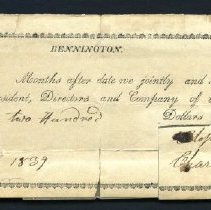 BENNINGTON.
Months after date we jointly and
sident, Directors and Company of
two Hundred Dollars
1839